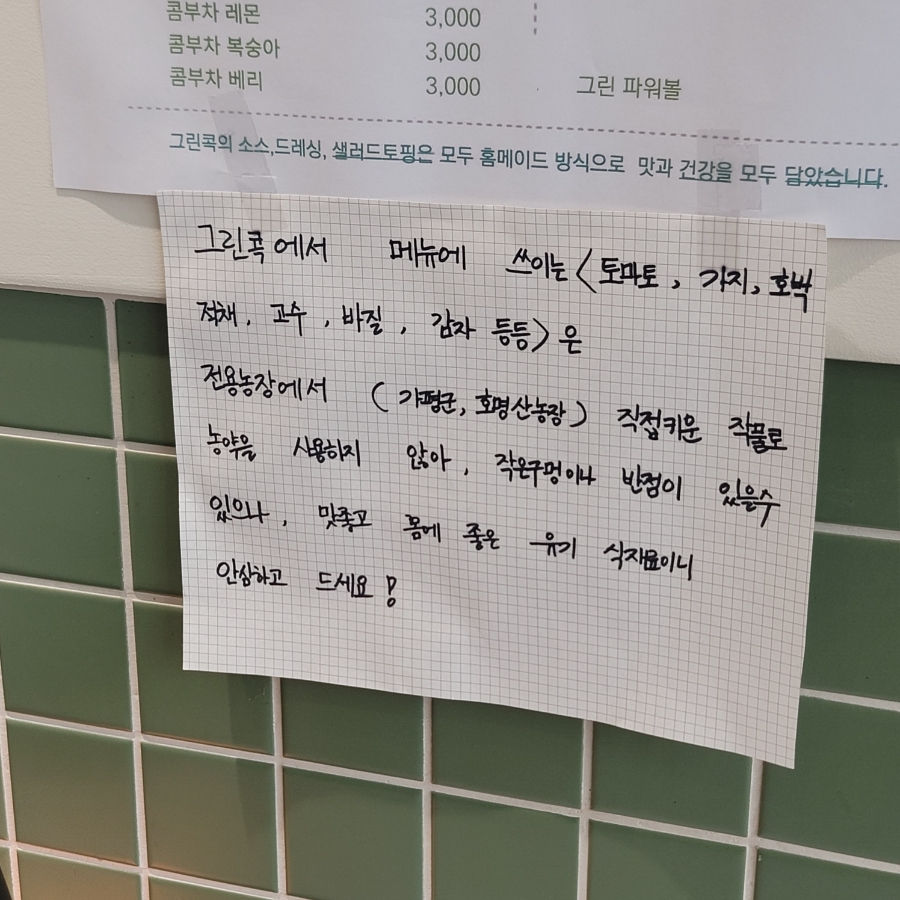 콤부차 레몬 3,000
콤부차 복숭아 3,000
콤부차 베리 3,000 그린 파워볼
그린콕의 소스,드레싱, 샐러드토핑은 모두 홈메이드 방식으로 맛과 건강을 모두 담았습니다.
그린콕에서 메뉴에 쓰이는 〈토마토, 가지, 호박
적채, 고수, 바질, 감자 등등〉은
전용농장에서 (가평군, 호명산농장) 직접키운 작물로
농약을 사용하지 않아, 작은구멍이나 반점이 있을수
있으나, 맛좋고 몸에 좋은 유기 식자료이니
안심하고 드세요!